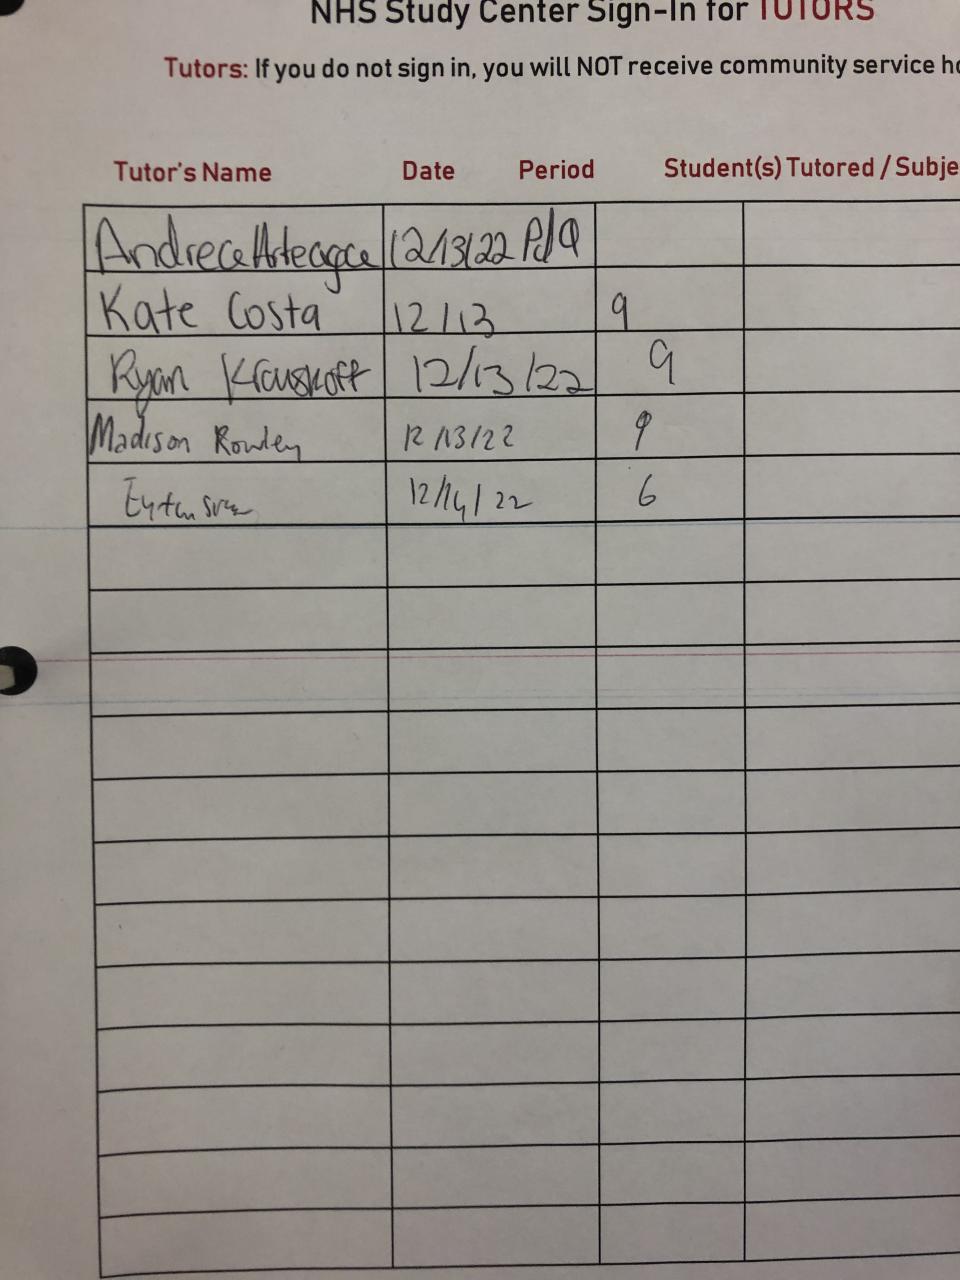 NHS Study Center Sign-In for TUTORS
Tutors: If you do not sign in, you will NOT receive community service
Tutor's Name Date Period Student(s) Tutored / Subje
Andrea Arteaga 12/13/22 Pd 9
Kate Costa 12/13 9
Ryan 12/13/22 9
Madison Rowley 12/13/22 9
12/14/22 6